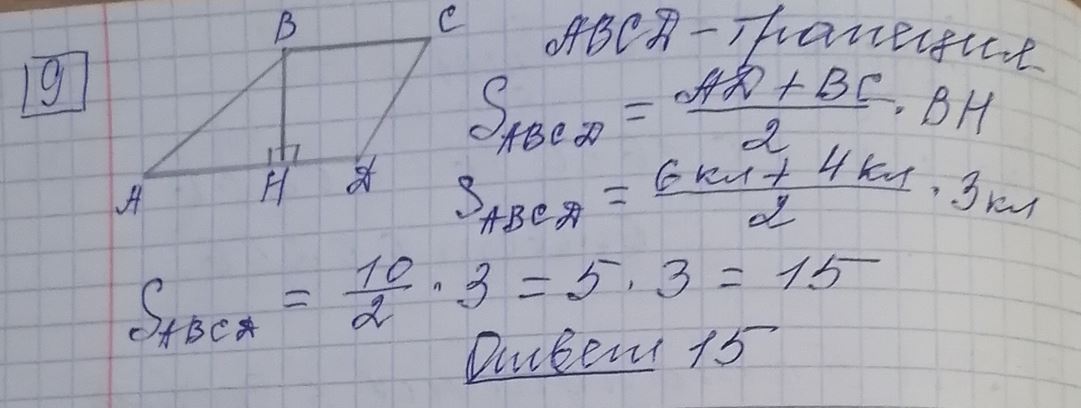 9
B C
A H D
ABCD - трапеция
S_ABCD = (AD + BC)/2 · BH
S_ABCD = (6кл + 4кл)/2 · 3кл
S_ABCD = 10/2 · 3 = 5 · 3 = 15
Ответ 15